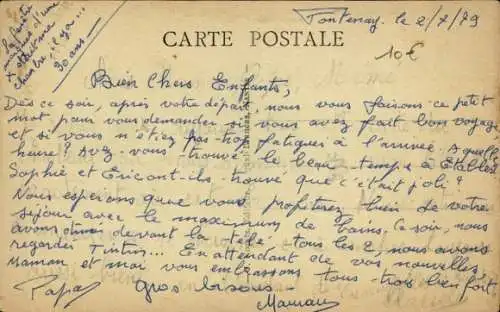 Fontenay, le 2/7/79
la petite
maison d'une
chambre il y a...
30 ans -
CARTE POSTALE
10€
Bien Chers Enfants,
Dès ce soir, après votre départ, nous vous faisons ce petit
mot pour vous demander si vous avez fait bon voyage
et si vous n'étiez pas trop fatigués à l'arrivée. A quelle
heure? Avez-vous trouvé le beau temps à Etables
Sophie et Eric ont-ils trouvé que c'était joli?
Nous espérons que vous profiterez bien de votre
séjour avec le maximum de bains. Ce soir, nous
avons diner devant la télé, tous les 2, nous avons
regarder Tintin... En attendant de vos nouvelles,
Maman et moi vous embrassons tous trois bien fort.
Gros bisous -
Papa Maman